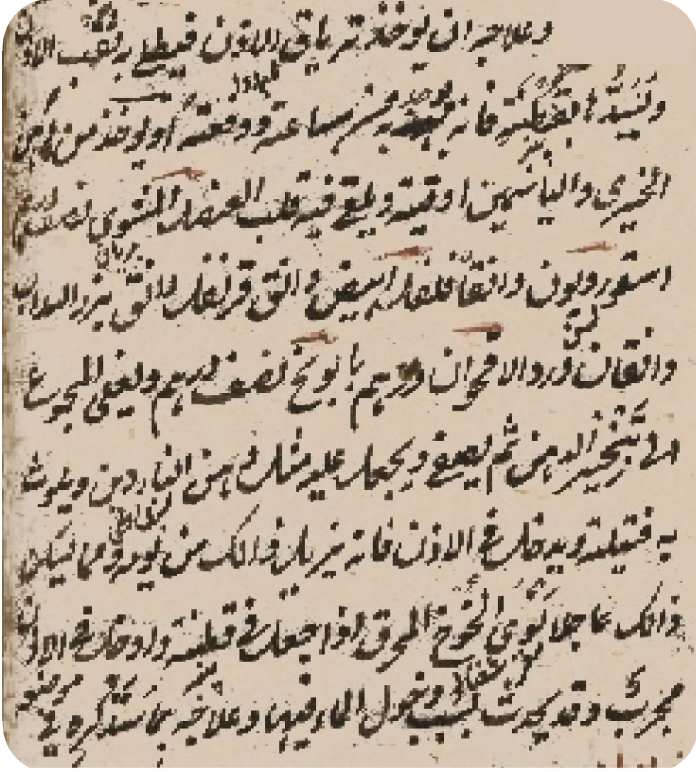 وعلاجه ان يوخذ ترياق الاذن فيطلى بقطن الاذن
وتسد بقطنة فانه يبريه من ساعته ووقته او يوخذ من دهن
الخيرى والياسمين اوقية ويلقى فيه قلب العنصل المشوى نصف درهم
اسقورديون دانقا فلفل ابيض دانق قرنفل دانق بزر السداب
دانقان ورد الاقحوان درهم بابونج نصف درهم ويغلى المجموع
الى الدهن ثم يصفى ويجعل عليه مثله دهن الناردين ويلوث
به فتيلة ويدخل فى الاذن فانه يزيل ذالك من يومه ومما يسكن
ذالك عاجلا نوى الخوخ المحرق اذا جعل فى قطنة وادخل فى الاذن
مجرب وقد يحدث بسبب دخول الماء فيها وعلاجه بما سنذكره فى